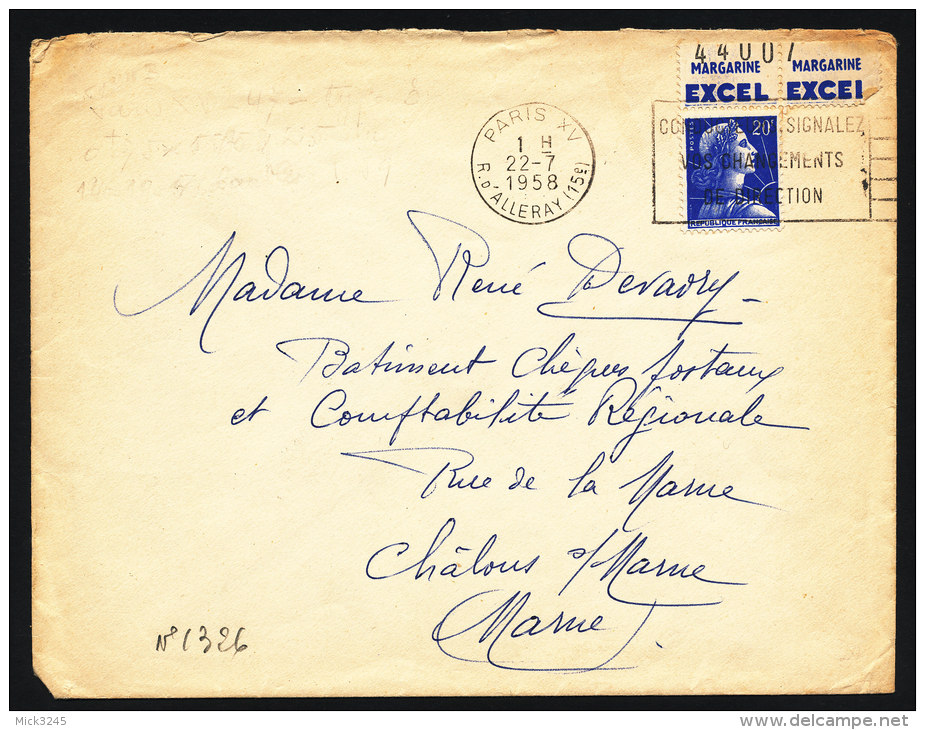 44007
MARGARINE MARGARINE
EXCEL EXCEL
PARIS XV
1 H
22-7
1958
R. D'ALLERAY (15E)
SIGNALEZ
VOS CHANGEMENTS
DE DIRECTION
POSTES
20F
REPUBLIQUE FRANÇAISE
Madame René Devadry
Batiment Chèques postaux
et Comptabilité Régionale
Rue de la Marne
Châlons s/Marne
Marne
N° 1326
Mick3245
delcampe.net